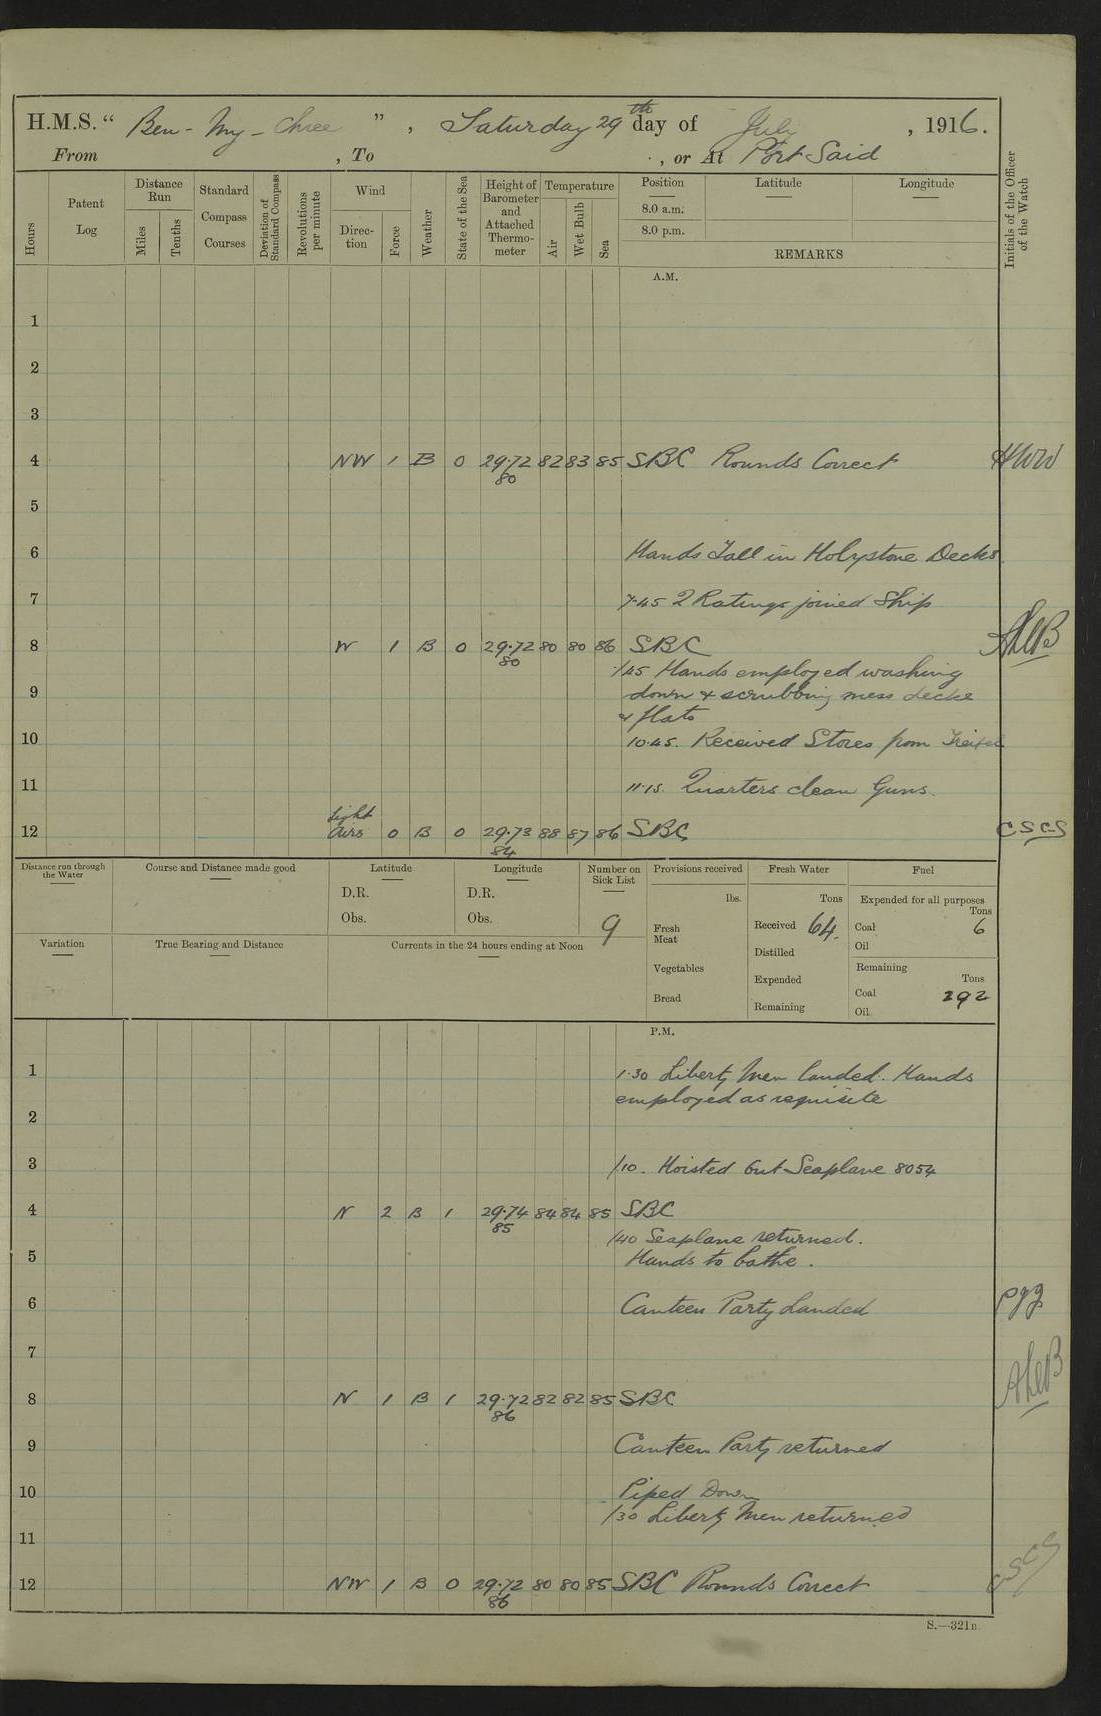 H.M.S. “ Ben-My-Chree ”, Saturday 29th day of July, 1916.
From , To , or At Port Said
Hours
Patent Log
Distance Run
Miles
Tenths
Standard Compass Courses
Deviation of Standard Compass
Revolutions per minute
Wind
Direction
Force
Weather
State of the Sea
Height of Barometer and Attached Thermometer
Temperature
Air
Wet Bulb
Sea
Position
8.0 a.m.
8.0 p.m.
Latitude
Longitude
REMARKS
Initials of the Officer of the Watch
A.M.
1
2
3
4 NW 1 B 0 29.72 82 83 85 SBC Rounds Correct
80
5
6 Hands Fall in Holystone Decks.
7 7.45 2 Ratings joined Ship
8 W 1 B 0 29.72 80 80 86 SBC
80
/45 Hands employed washing
9 down & scrubbing mess decks
& flats
10 10.45. Received Stores from
11 11.15. Quarters clean Guns.
12 Light Airs 0 B 0 29.73 88 87 86 SBC CSCS
84
Distance run through the Water
Course and Distance made good
Latitude
D.R.
Obs.
Longitude
D.R.
Obs.
Number on Sick List
9
Provisions received
lbs.
Fresh Meat
Vegetables
Bread
Fresh Water
Tons
Received 64.
Distilled
Expended
Remaining
Fuel
Expended for all purposes
Tons
Coal 6
Oil
Remaining
Tons
Coal 292
Oil
Variation
True Bearing and Distance
Currents in the 24 hours ending at Noon
P.M.
1 1.30 Liberty Men landed. Hands
employed as requisite
2
3 /10. Hoisted Out Seaplane 8054
4 N 2 B 1 29.74 84 84 85 SBC
85
/40 Seaplane returned.
5 Hands to bathe.
6 Canteen Party Landed
7
8 N 1 B 1 29.72 82 82 85 SBC
86
9 Canteen Party returned
10 Piped Down
/30 Liberty Men returned
11
12 NW 1 B 0 29.72 80 80 85 SBC Rounds Correct CSCS
86
S.—321B